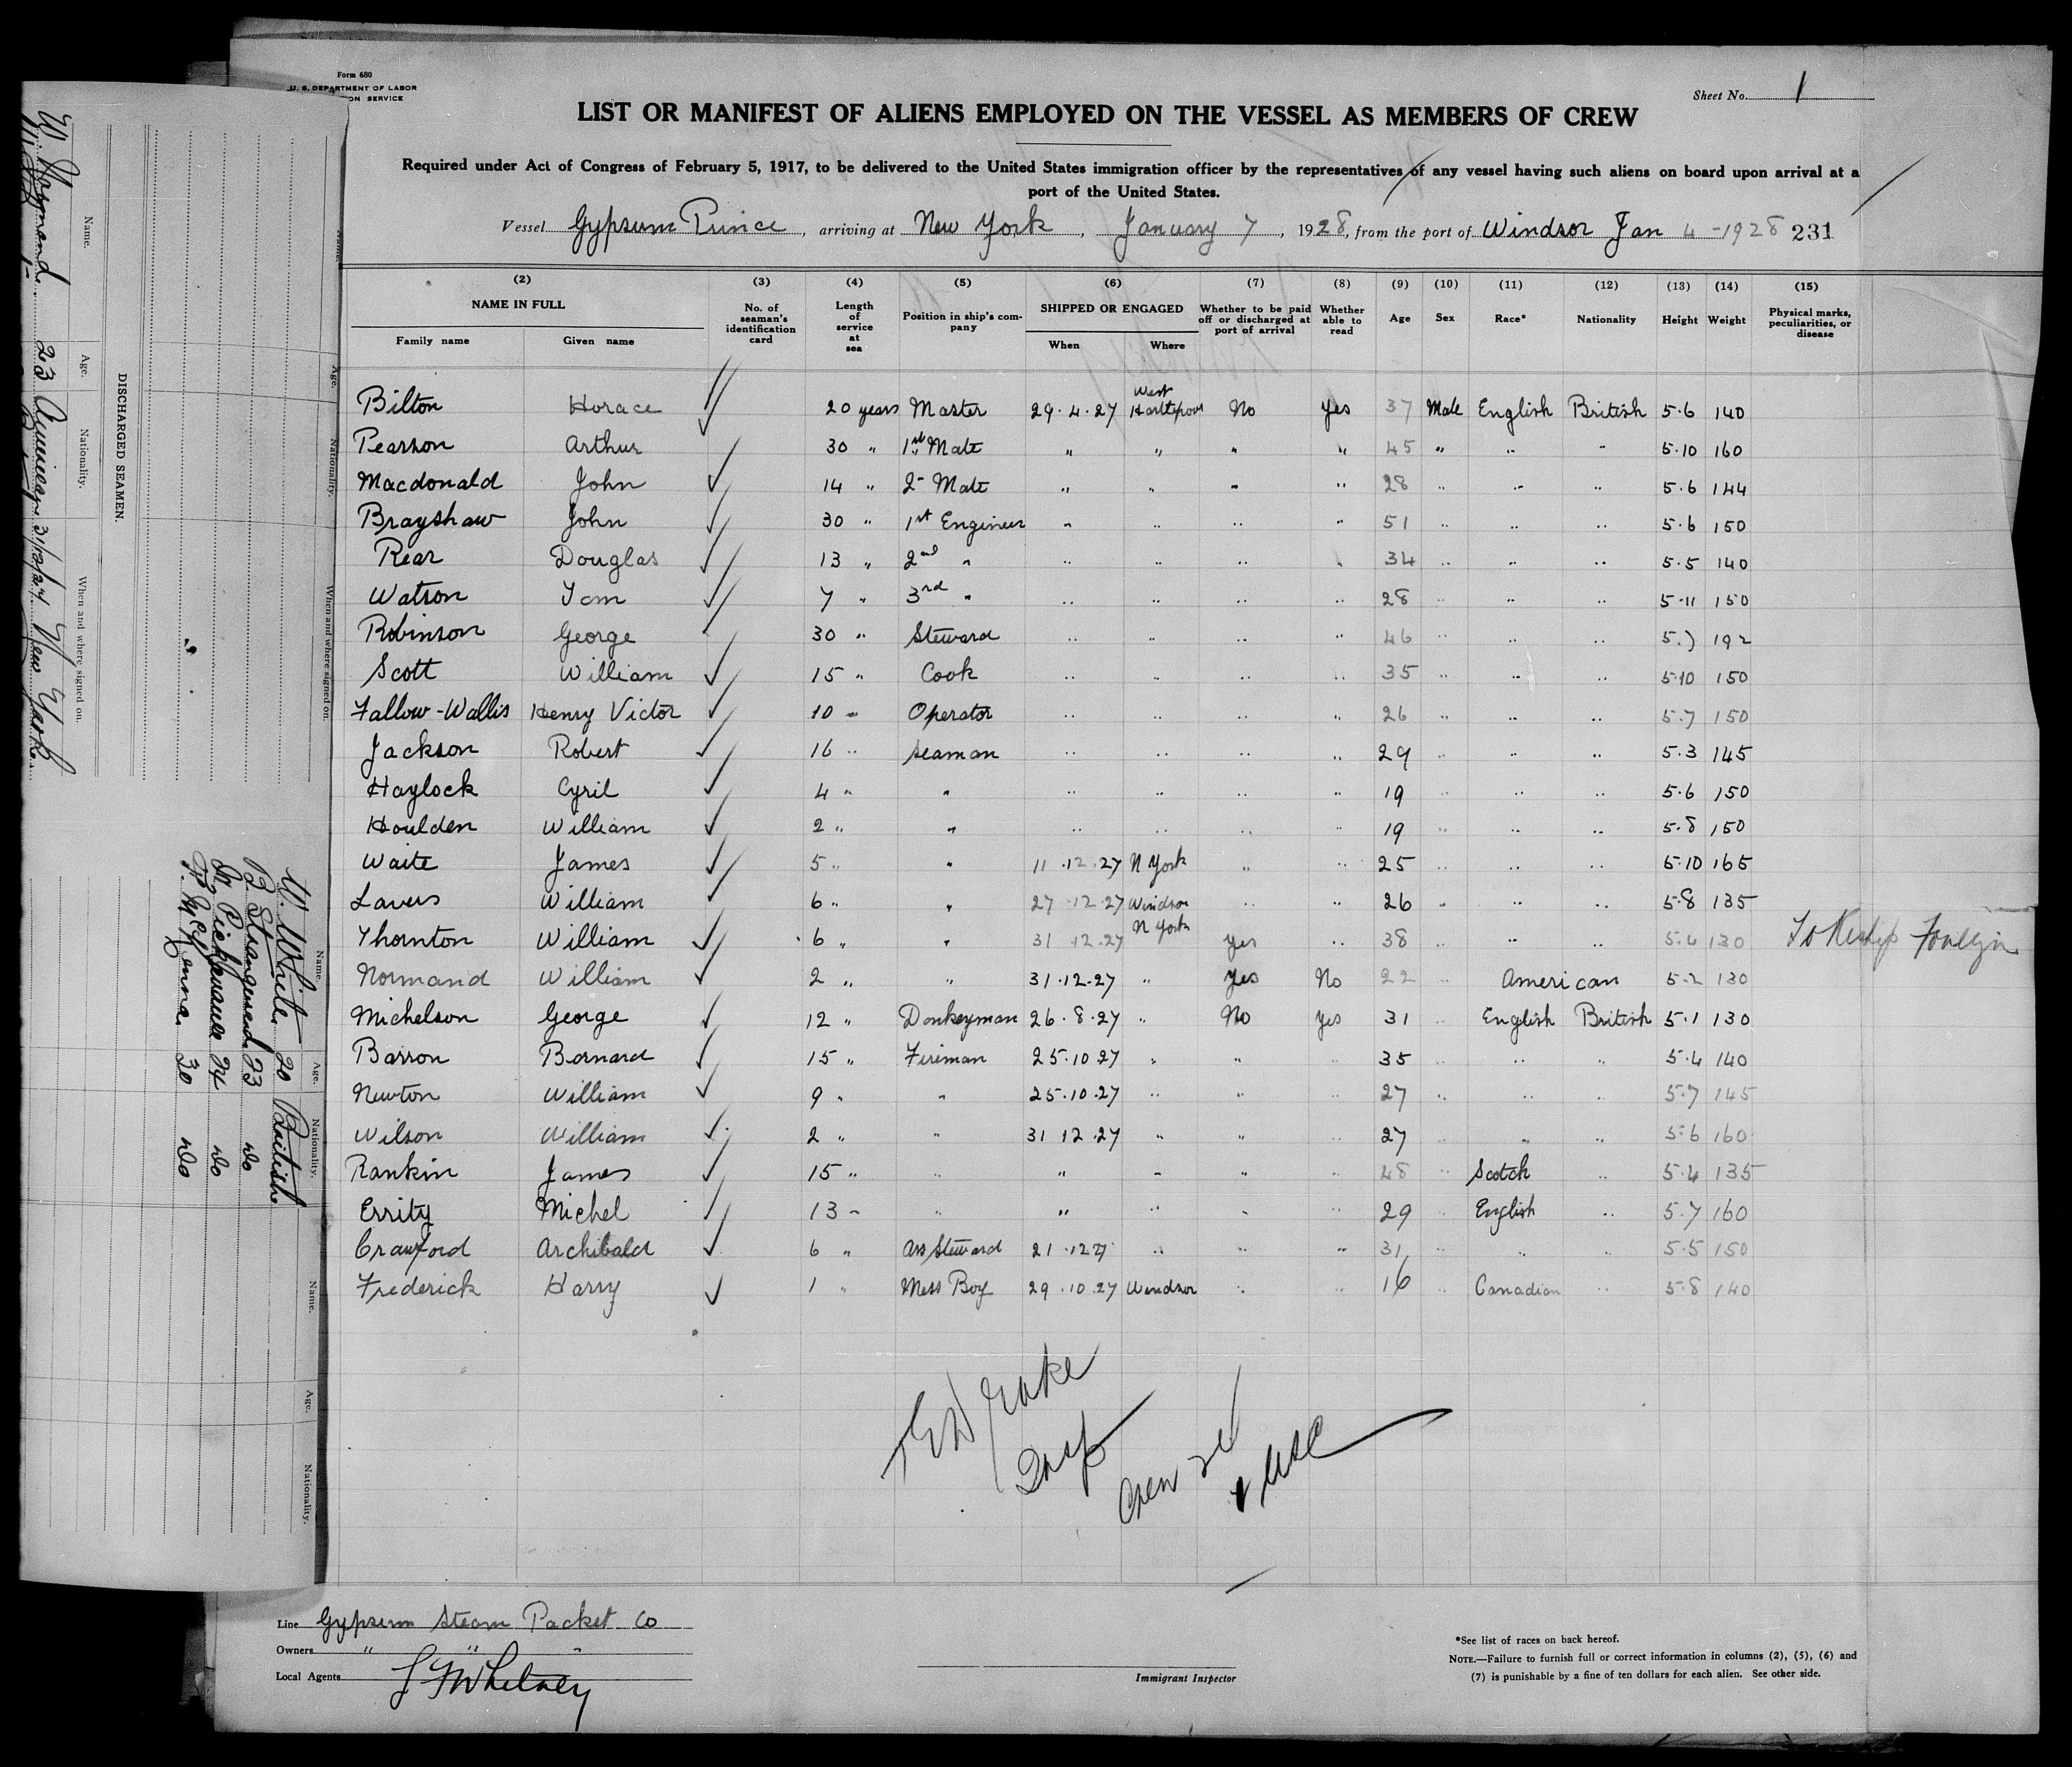 Form 680
U. S. DEPARTMENT OF LABOR
SERVICE
Sheet No. 1
LIST OR MANIFEST OF ALIENS EMPLOYED ON THE VESSEL AS MEMBERS OF CREW
Required under Act of Congress of February 5, 1917, to be delivered to the United States immigration officer by the representatives of any vessel having such aliens on board upon arrival at a
port of the United States.
Vessel Gypsum Prince, arriving at New York, January 7, 1928, from the port of Windsor Jan 4-1928 231
(2) (3) (4) (5) (6) (7) (8) (9) (10) (11) (12) (13) (14) (15)
NAME IN FULL No. of seaman's identification card Length of service at sea Position in ship's company SHIPPED OR ENGAGED Whether to be paid off or discharged at port of arrival Whether able to read Age Sex Race* Nationality Height Weight Physical marks, peculiarities, or disease
Family name Given name When Where
Bilton Horace 20 years Master 29.4.27 West Hartlepool No Yes 37 Male English British 5.6 140
Pearson Arthur 30 " 1st Mate " " " " 45 " " " 5.10 160
Macdonald John 14 " 2 Mate " " " " 28 " " " 5.6 144
Brayshaw John 30 " 1st Engineer " " " " 51 " " " 5.6 150
Rear Douglas 13 " 2nd " " " " " 34 " " " 5.5 140
Watson Tom 7 " 3rd " " " " " 28 " " " 5.11 150
Robinson George 30 " Steward " " " " 46 " " " 5.7 192
Scott William 15 " Cook " " " " 35 " " " 5.10 150
Fallow-Wallis Henry Victor 10 " Operator " " " " 26 " " " 5.7 150
Jackson Robert 16 " Seaman " " " " 29 " " " 5.3 145
Haylock Cyril 4 " " " " " " 19 " " " 5.6 150
Houlden William 2 " " " " " " 19 " " " 5.8 150
Waite James 5 " " 11.12.27 N York " " 25 " " " 5.10 165
Lavers William 6 " " 27.12.27 Windsor " " 26 " " " 5.8 135
Thornton William 6 " " 31.12.27 N York Yes " 38 " " " 5.6 130 To Reship Foreign
Normand William 2 " " 31.12.27 " Yes No 22 " American 5.2 130
Michelson George 12 " Donkeyman 26.8.27 " No Yes 31 " English British 5.1 130
Barron Bernard 15 " Fireman 25.10.27 " " 35 " " " 5.4 140
Newton William 9 " " 25.10.27 " " " 27 " " " 5.7 145
Wilson William 2 " " 31 12.27 " " " 27 " " " 5.6 160
Rankin James 15 " " " " " " 48 " Scotch " 5.4 135
Errity Michel 13 " " " " " " 29 " English " 5.7 160
Crawford Archibald 6 " Ass Steward 21.12.27 " " " 31 " " " 5.5 150
Frederick Harry 1 " Mess Boy 29.10.27 Windsor " " 16 " Canadian " 5.8 140
Drake
Insp
Crew
Line Gypsum Steam Packet Co
Owners " " "
Local Agents J F Whitney
Immigrant Inspector
*See list of races on back hereof.
NOTE.—Failure to furnish full or correct information in columns (2), (5), (6) and
(7) is punishable by a fine of ten dollars for each alien. See other side.
DISCHARGED SEAMEN.
Name. Age. Nationality. When and where signed on.
W Normand 23 American 31/12/27 New York
Name. Age. Nationality. When and where signed on.
Name. Age. Nationality.
W. White 20 British
B Strangward 23 do
24 do
F. McKenna 30 do
Name. Age. Nationality.